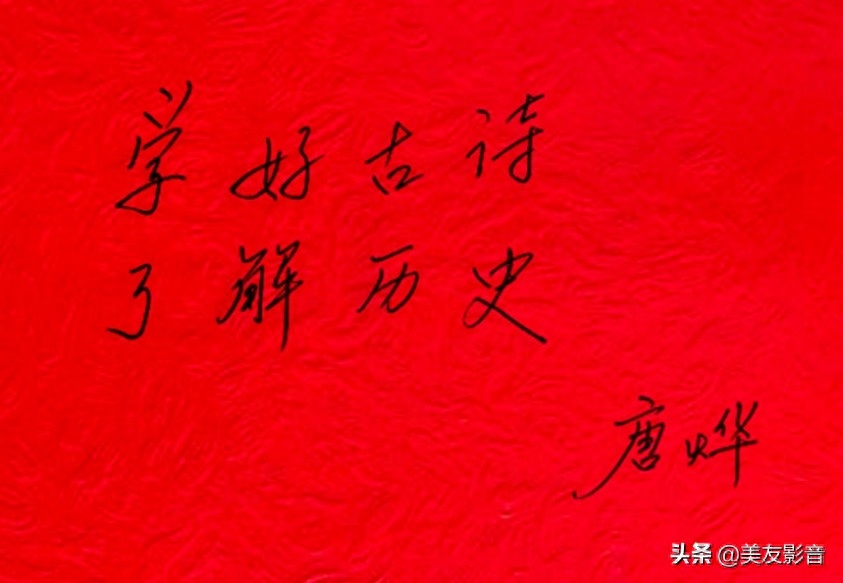 学好古诗
了解历史
唐烨
头条 @美友影音